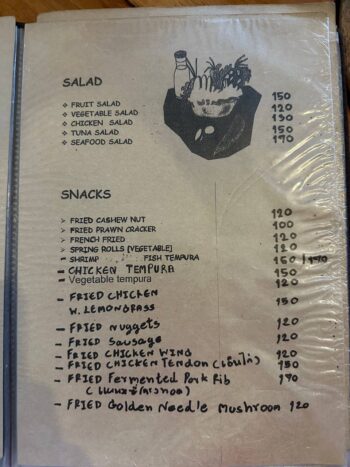 SALAD
❖ FRUIT SALAD 150
❖ VEGETABLE SALAD 120
❖ CHICKEN SALAD 130
❖ TUNA SALAD 150
❖ SEAFOOD SALAD 170
SNACKS
➢ FRIED CASHEW NUT 120
➢ FRIED PRAWN CRACKER 100
➢ FRENCH FRIED 120
➢ SPRING ROLLS [VEGETABLE] 120
- SHRIMP FISH TEMPURA /170
- CHICKEN TEMPURA 150
- Vegetable tempura 120
- FRIED CHICKEN
W. LEMONGRASS 150
- FRIED Nuggets 120
- FRIED Sausage 120
- FRIED CHICKEN WING 120
- FRIED CHICKEN TENDON (เอ็นไก่) 150
- FRIED Fermented Pork Rib 170
- FRIED Golden Needle Mushroom 120